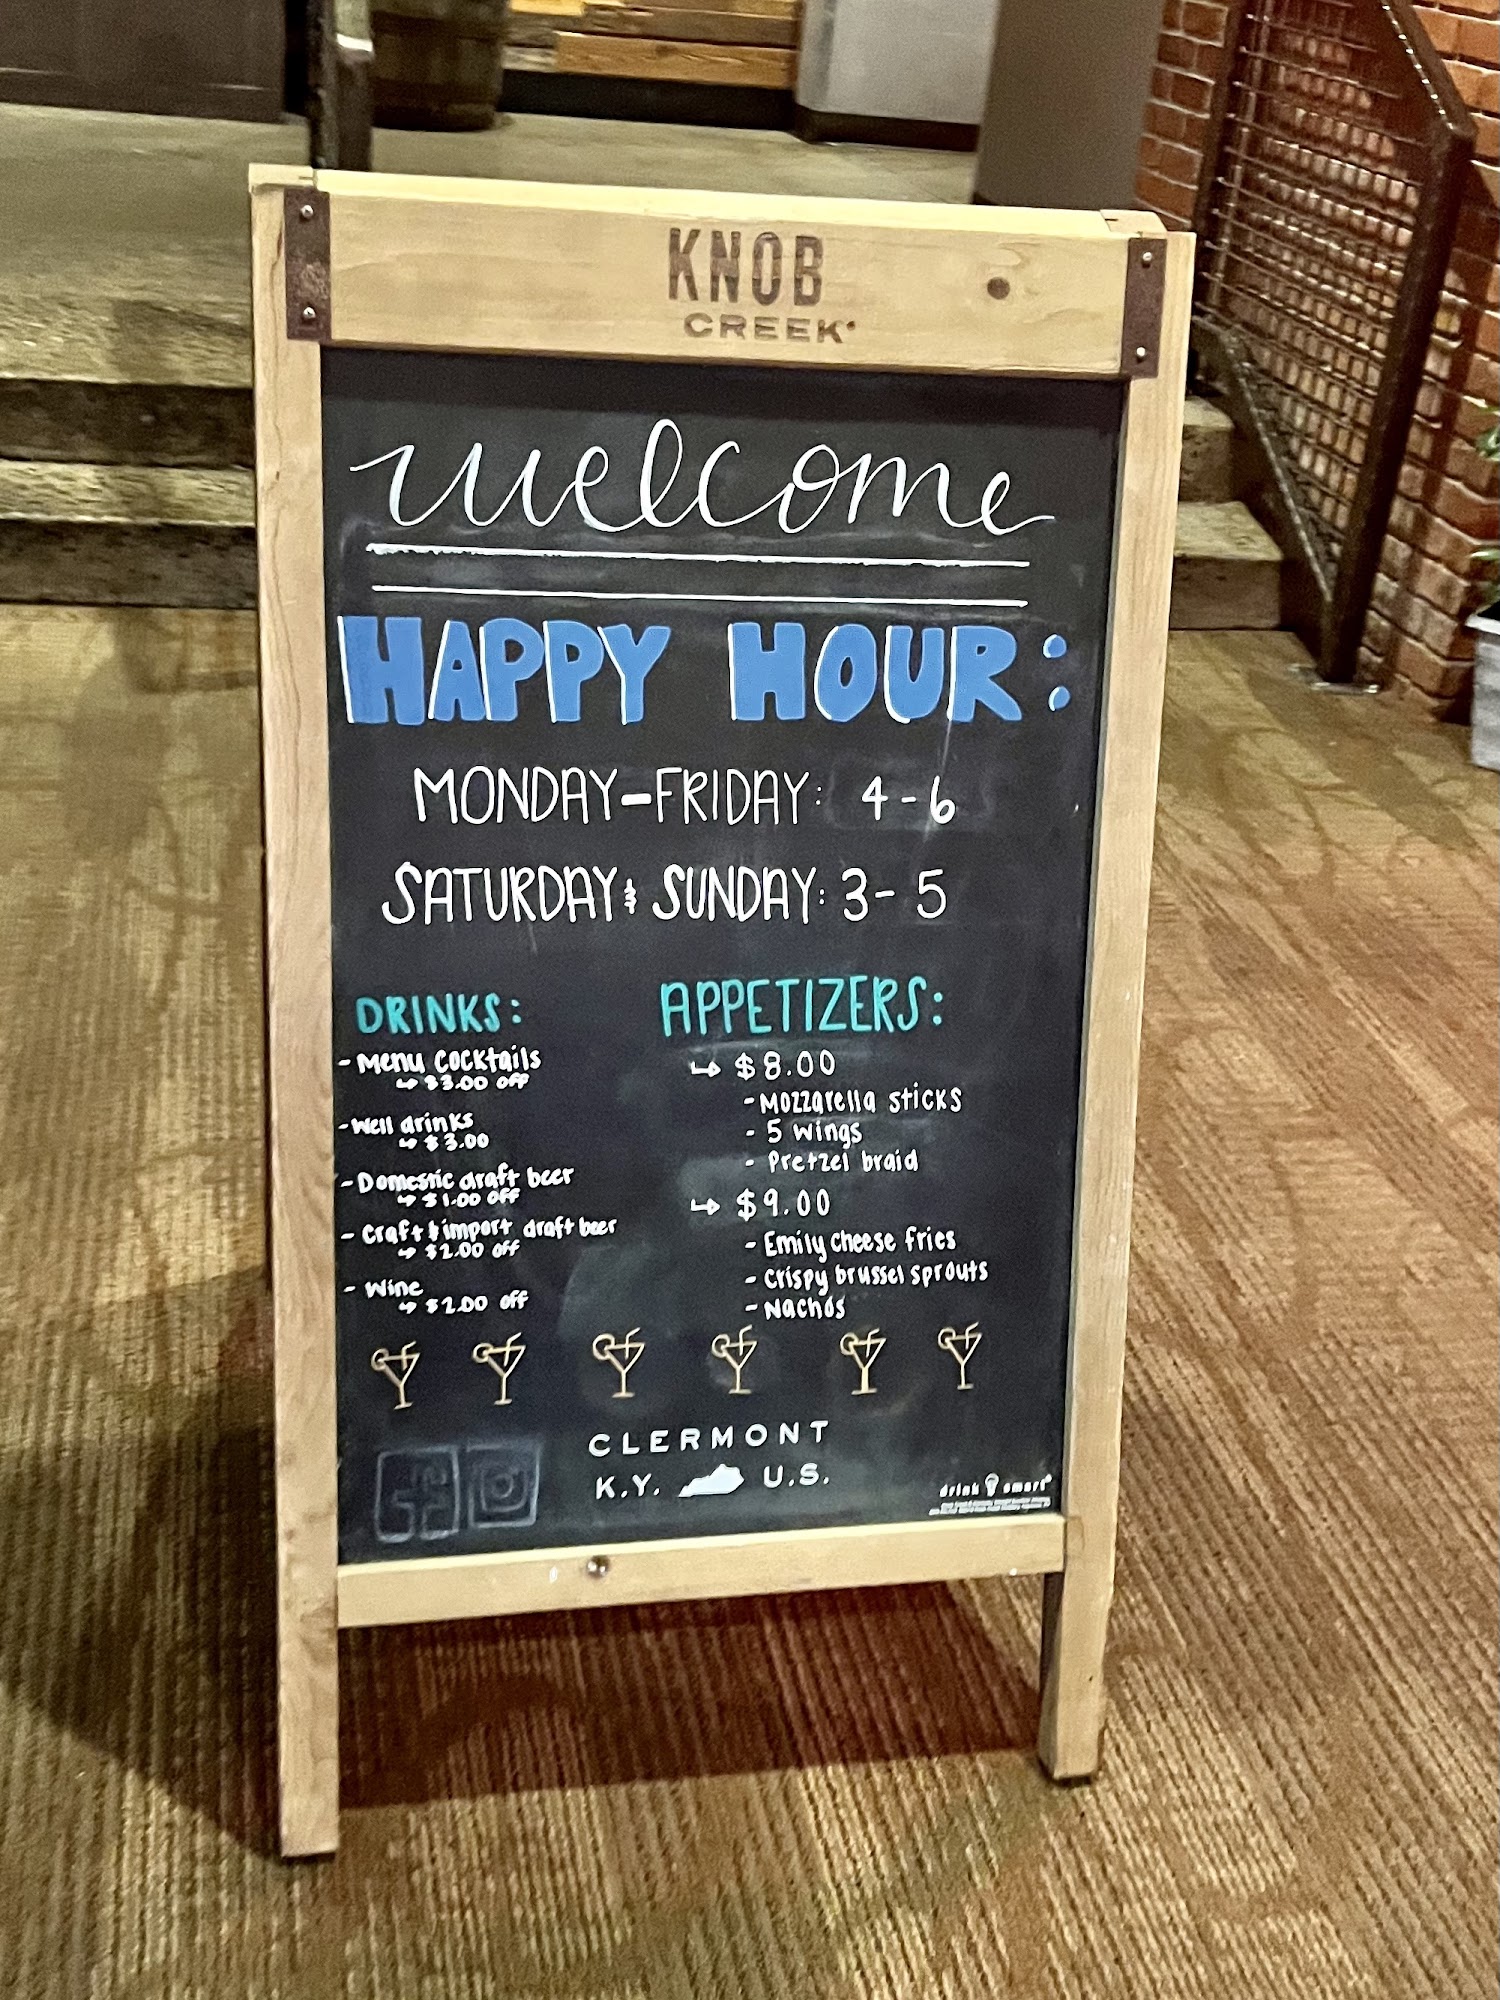 KNOB
CREEK
welcome
HAPPY HOUR:
MONDAY-FRIDAY: 4-6
SATURDAY & SUNDAY: 3-5
DRINKS:
- Menu cocktails
↳ $3.00 off
- Well drinks
↳ $3.00
- Domestic draft beer
↳ $1.00 off
- Craft & import draft beer
↳ $2.00 off
- Wine
↳ $2.00 off
APPETIZERS:
↳ $8.00
- Mozzarella sticks
- 5 wings
- Pretzel braid
↳ $9.00
- Emily cheese fries
- Crispy brussel sprouts
- Nachos
CLERMONT
K.Y. U.S.
drink smart